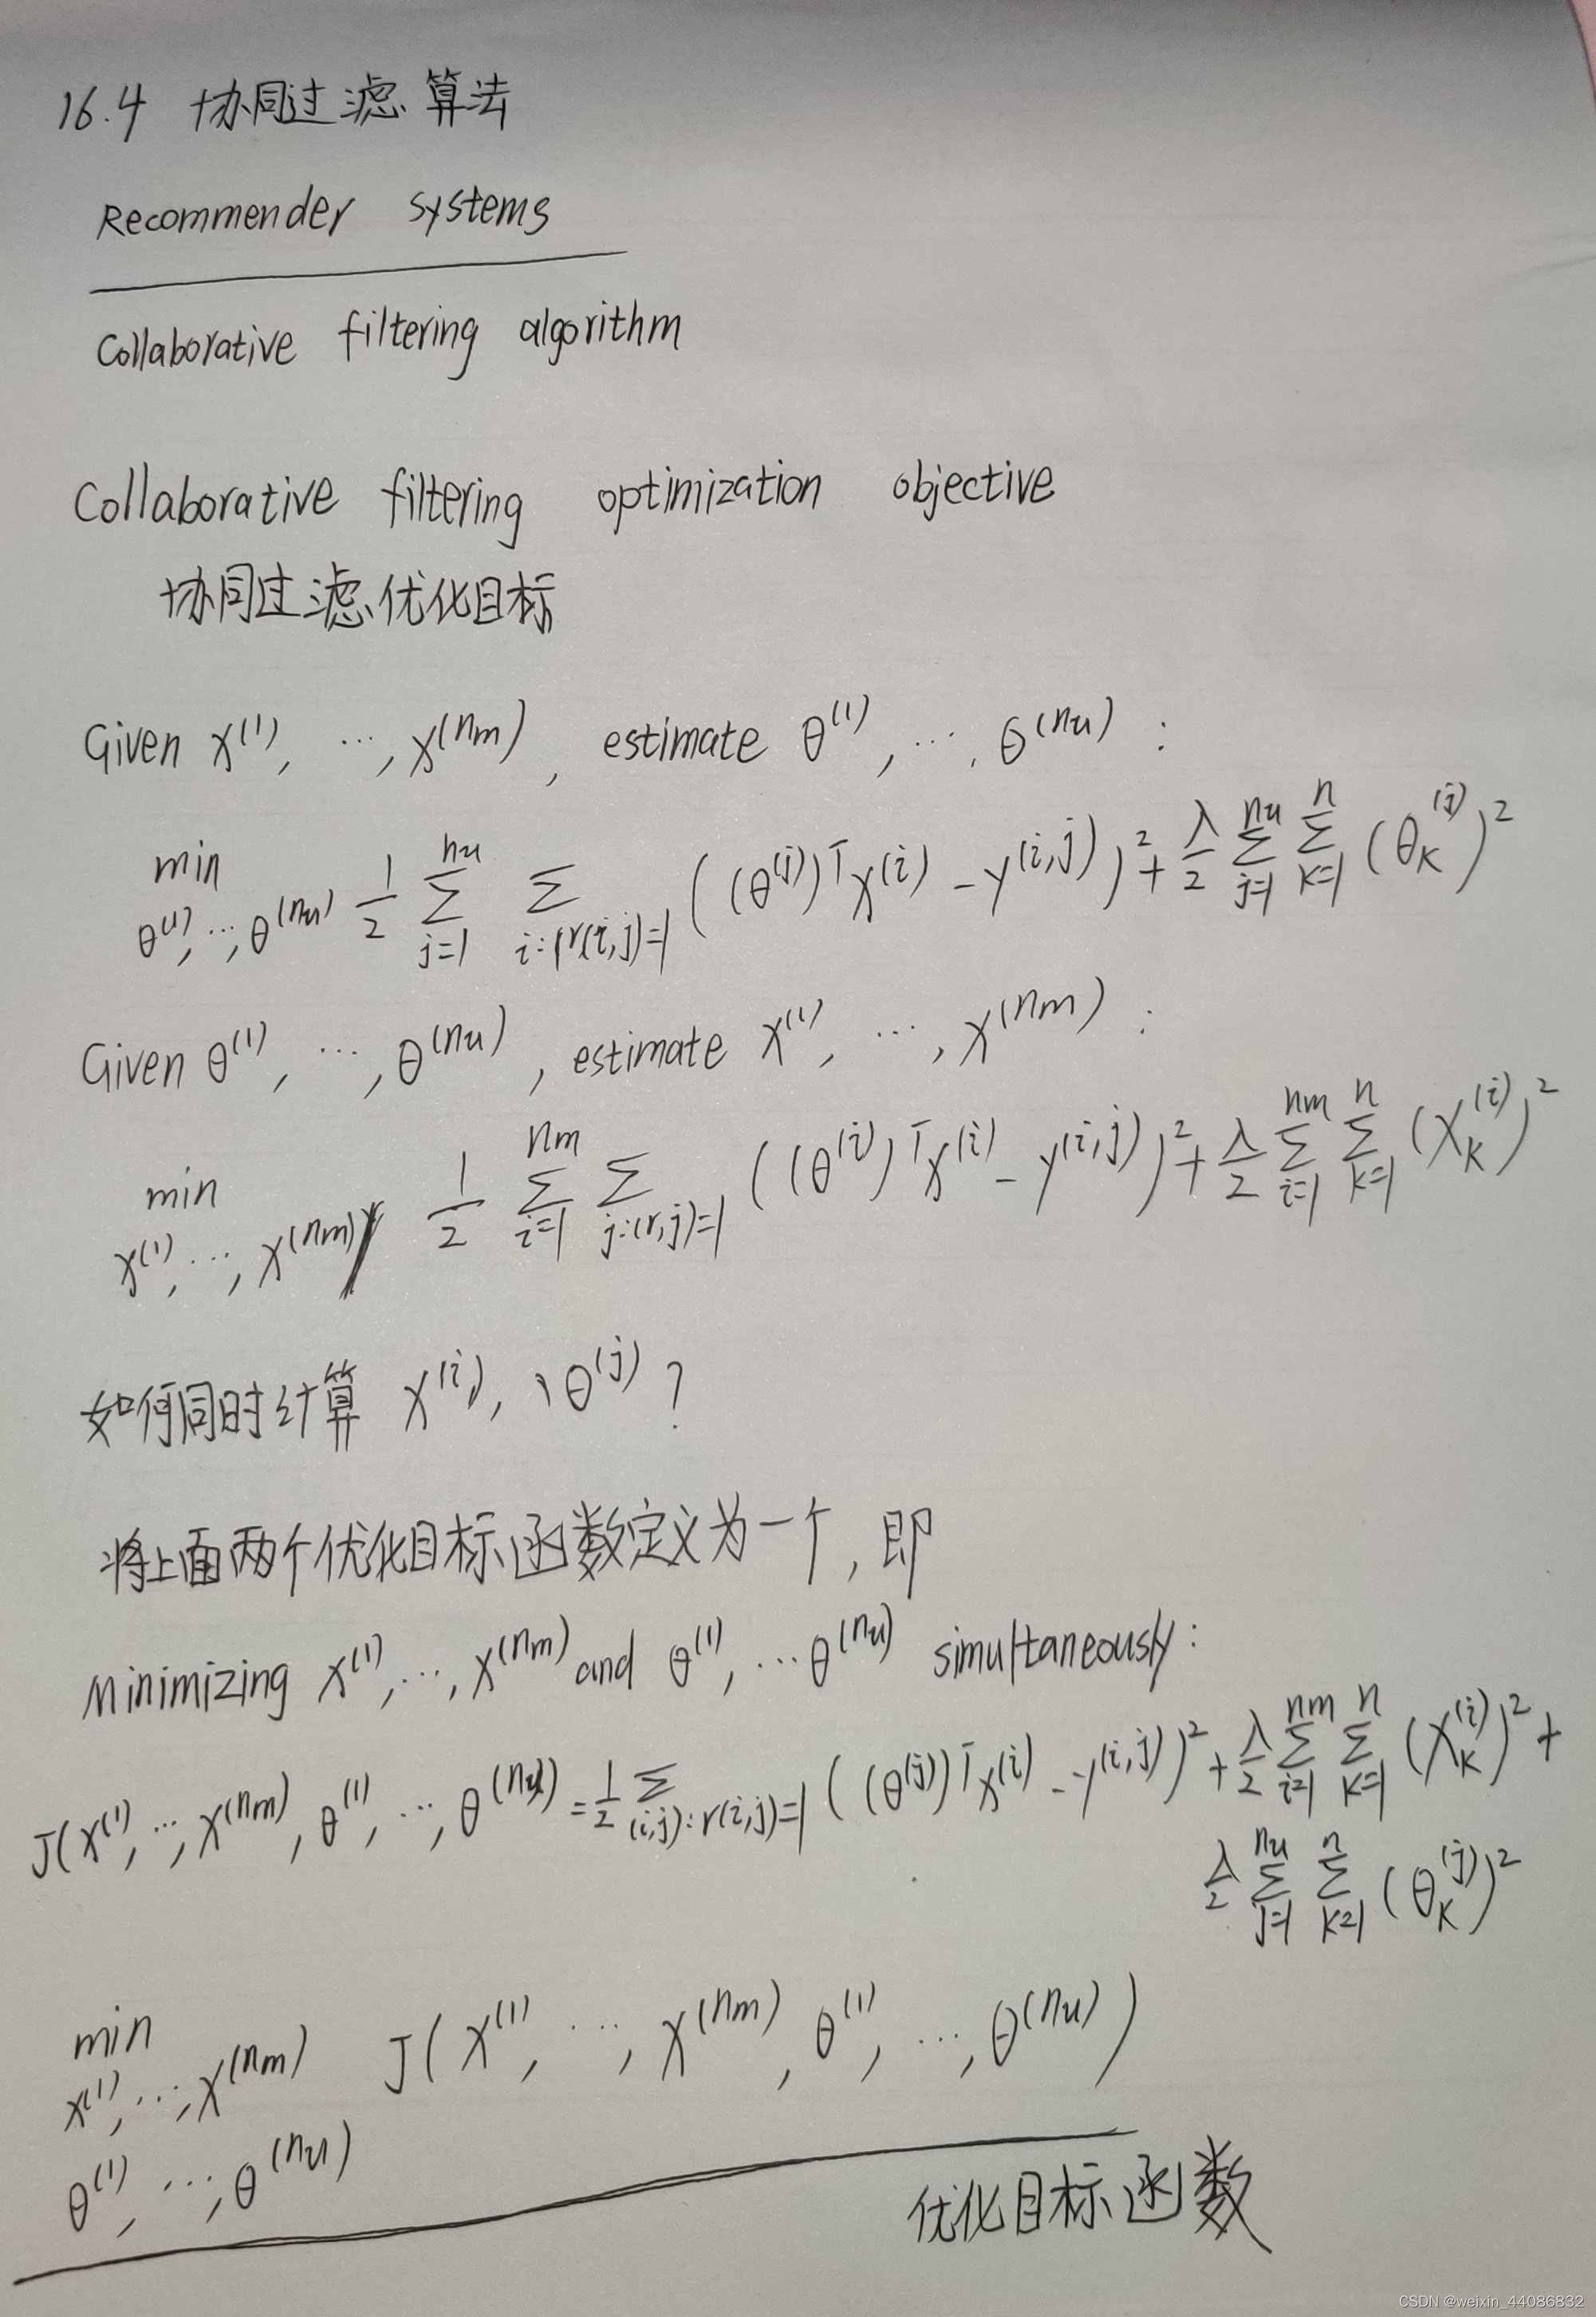 16.4 协同过滤算法
Recommender systems
Collaborative filtering algorithm
Collaborative filtering optimization objective
协同过滤优化目标
Given x^(1), ..., x^(nm), estimate θ^(1), ..., θ^(nu) :
min_{θ^(1), ..., θ^(nu)} 1/2 Σ_{j=1}^{nu} Σ_{i:(r(i,j)=1} ((θ^(j))^T x^(i) - y^(i,j))^2 + λ/2 Σ_{j=1}^{nu} Σ_{k=1}^{n} (θ_k^(j))^2
Given θ^(1), ..., θ^(nu), estimate x^(1), ..., x^(nm) :
min_{x^(1), ..., x^(nm)} 1/2 Σ_{i=1}^{nm} Σ_{j:(r,j)=1} ((θ^(i))^T x^(i) - y^(i,j))^2 + λ/2 Σ_{i=1}^{nm} Σ_{k=1}^{n} (x_k^(i))^2
如何同时计算 x^(i), 、θ^(j) ?
将上面两个优化目标函数定义为一个, 即
Minimizing x^(1), ..., x^(nm) and θ^(1), ... θ^(nu) simultaneously:
J(x^(1), ..., x^(nm), θ^(1), ..., θ^(nu)) = 1/2 Σ_{(i,j):r(i,j)=1} ((θ^(j))^T x^(i) - y^(i,j))^2 + λ/2 Σ_{i=1}^{nm} Σ_{k=1}^{n} (x_k^(i))^2 +
λ/2 Σ_{j=1}^{nu} Σ_{k=1}^{n} (θ_k^(j))^2
min_{x^(1), ..., x^(nm) θ^(1), ..., θ^(nu)} J(x^(1), ..., x^(nm), θ^(1), ..., θ^(nu))
优化目标函数
CSDN @weixin_44086832